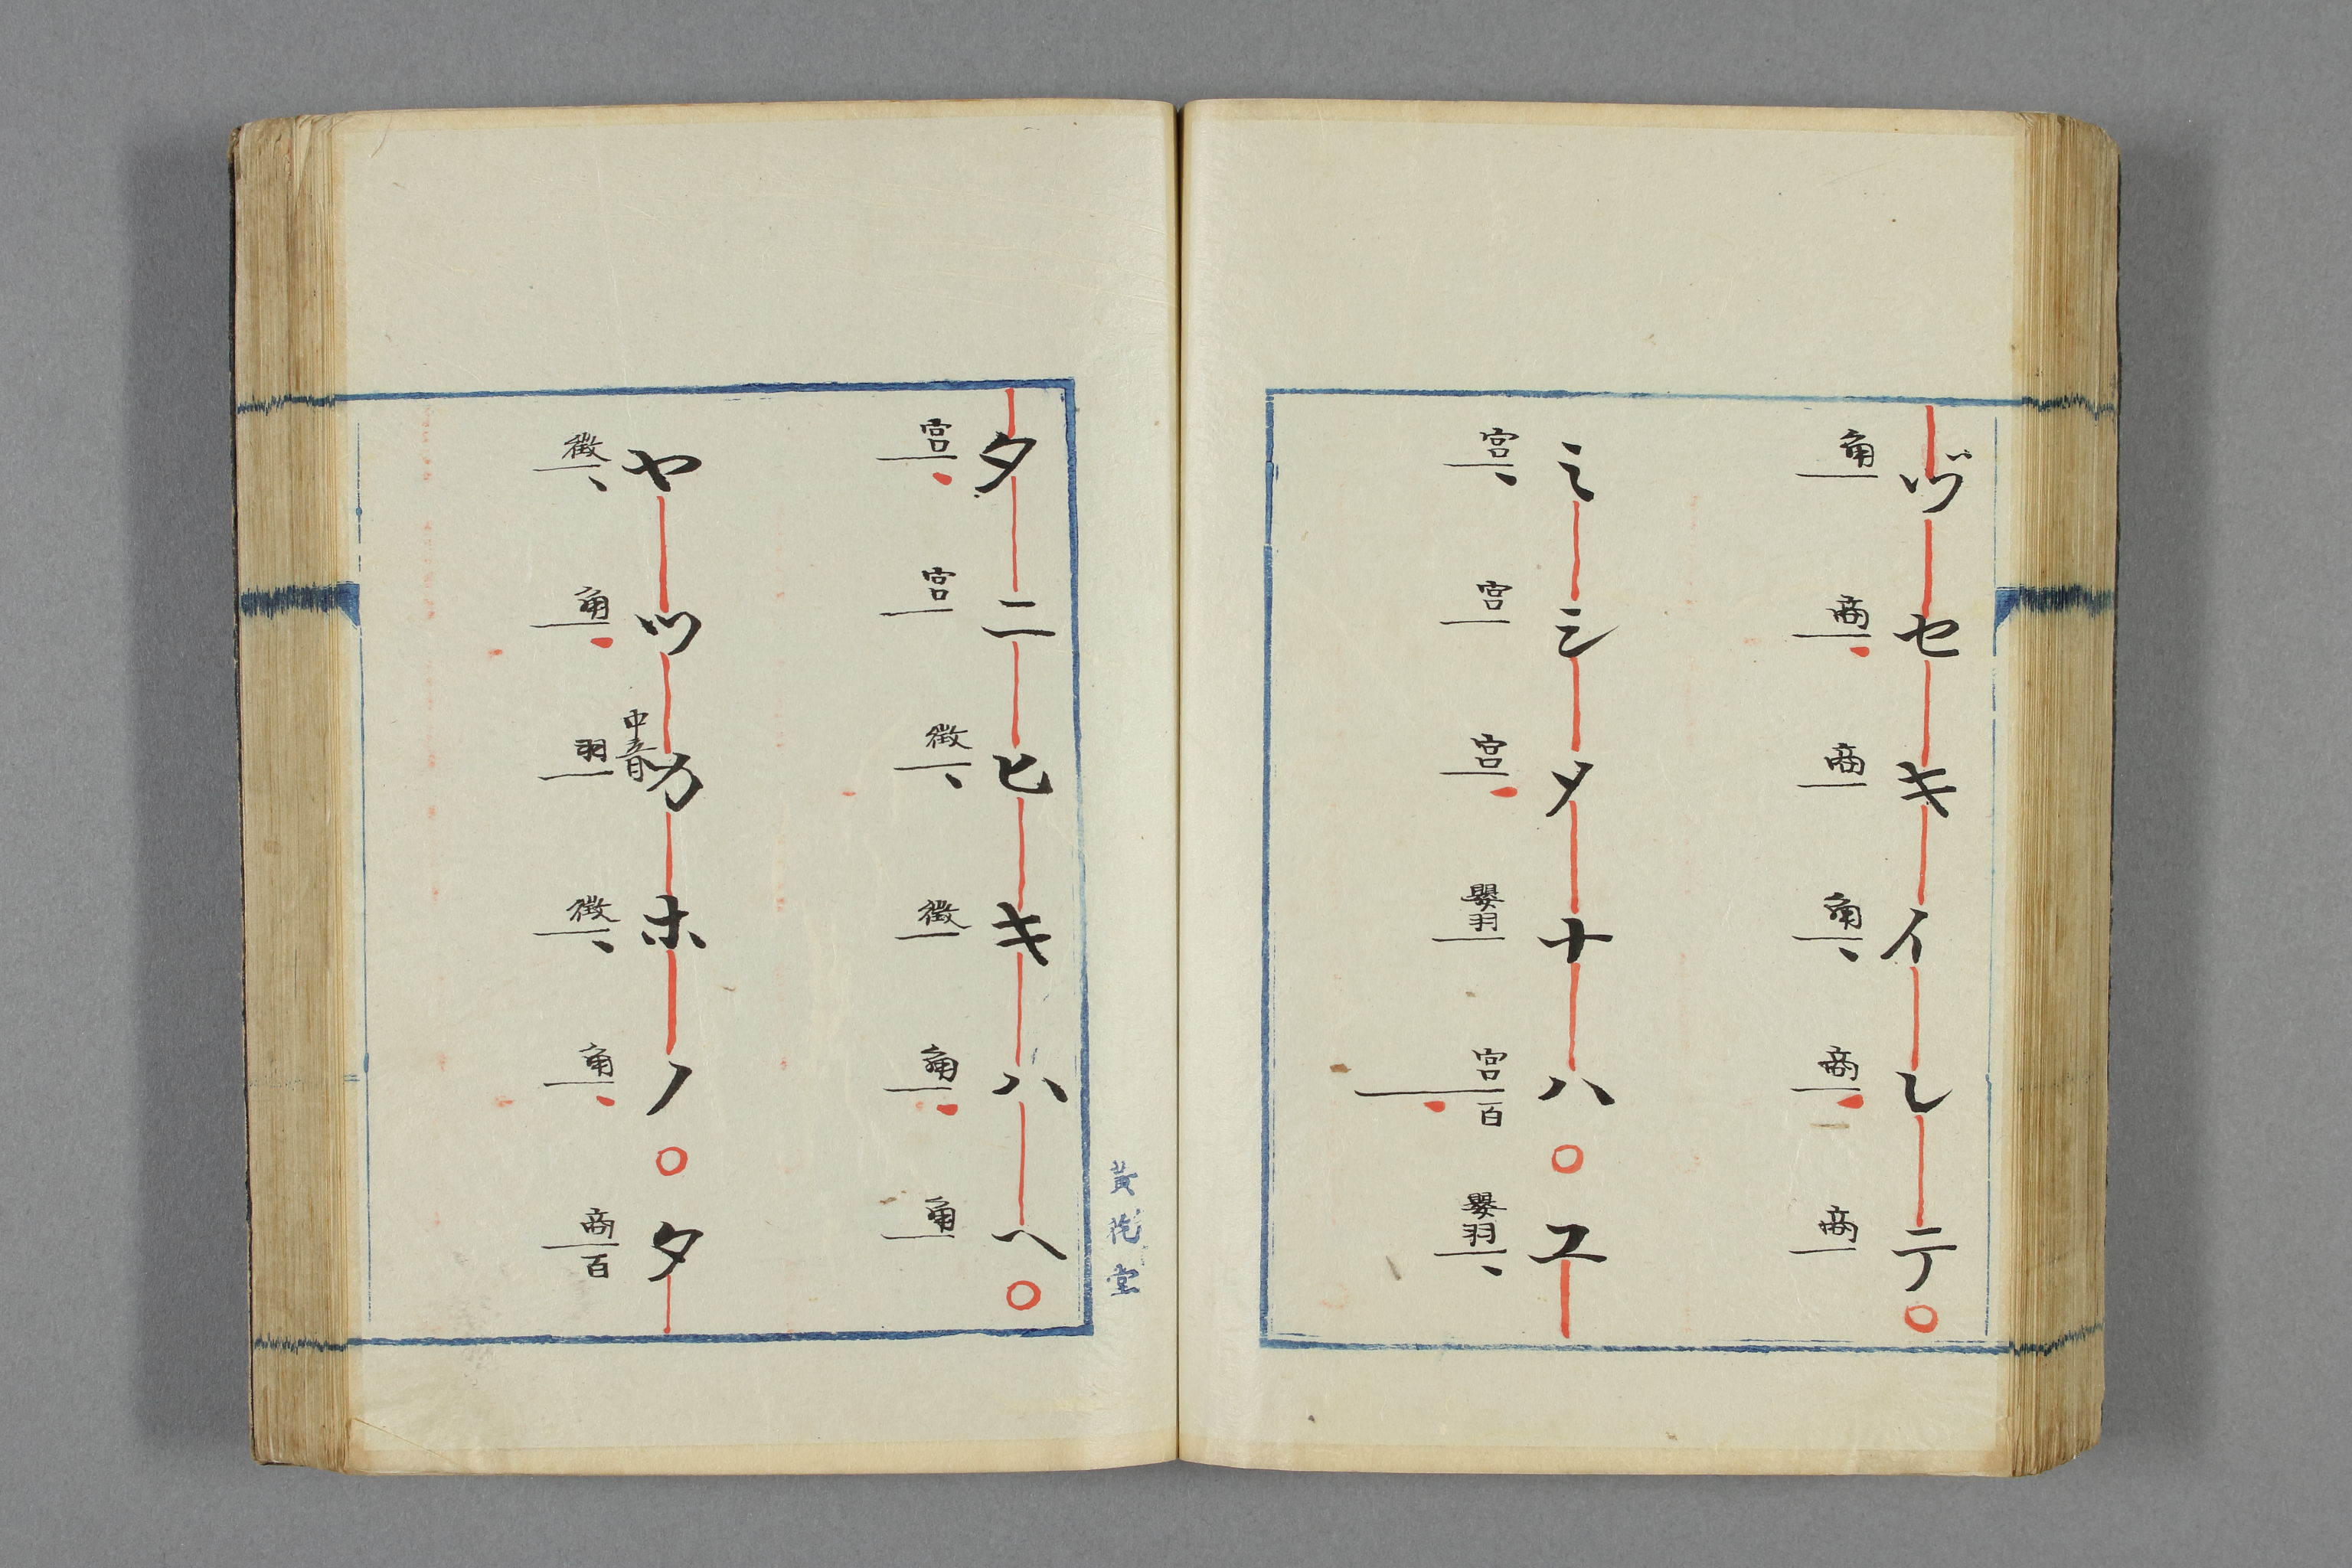 ヅセキイレテ○
角 商、商 角、商、商
ミシメナハ○ユ
宮、宮 宮、嬰羽 宮百、嬰羽、
タニヒキハヘ○
宮、宮 徴、徴 角、角
ヤツカホノ○タ
中音
徴、角、羽 徴、角、商百
堂